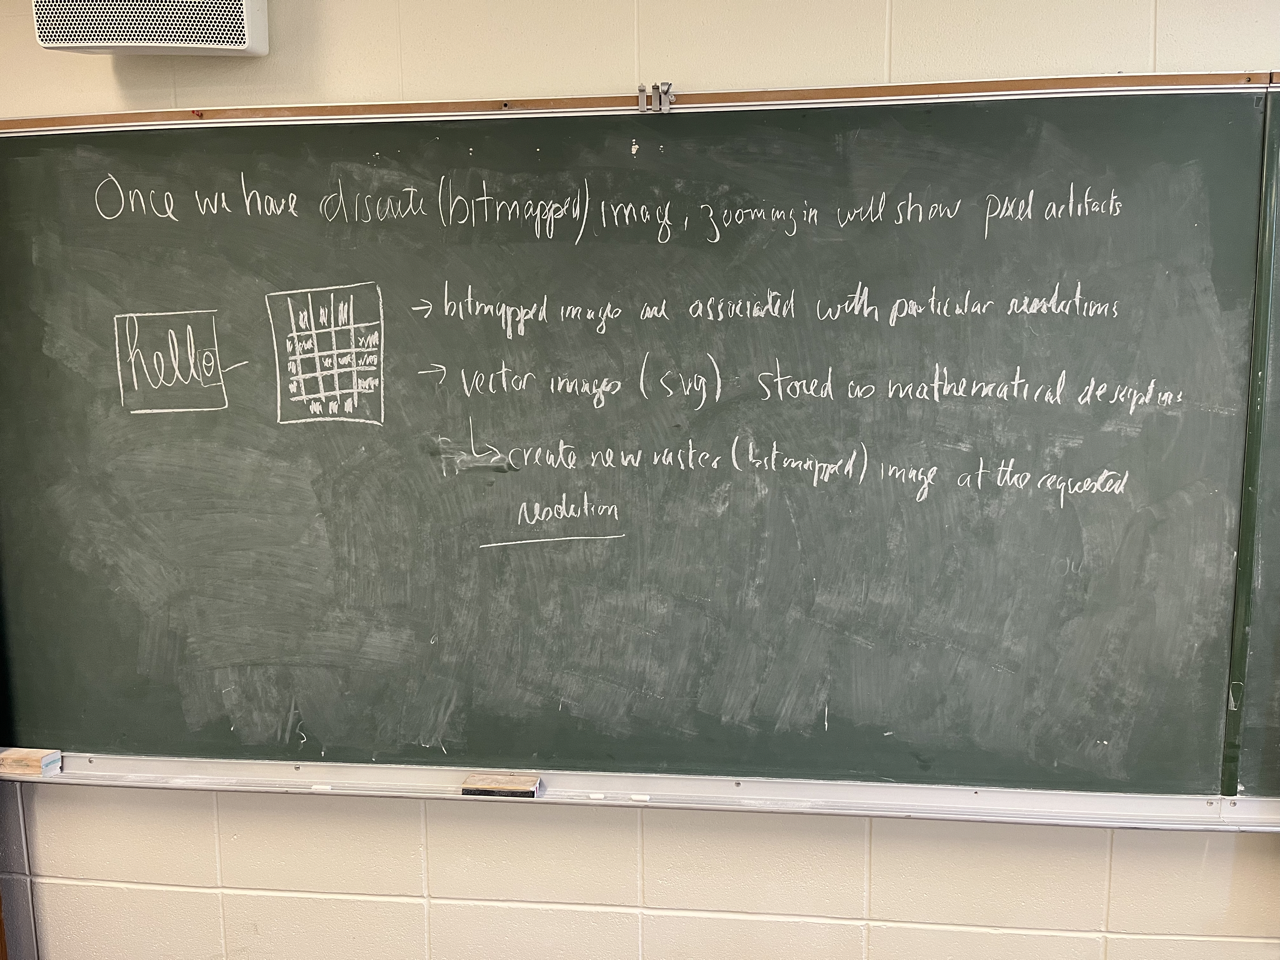 Once we have discrete (bitmapped) image, zooming in will show pixel artifacts
hello
→ bitmapped images are associated with particular resolutions
→ vector images (svg) stored as mathematical descriptions
↳ create new raster (bitmapped) image at the requested
resolution